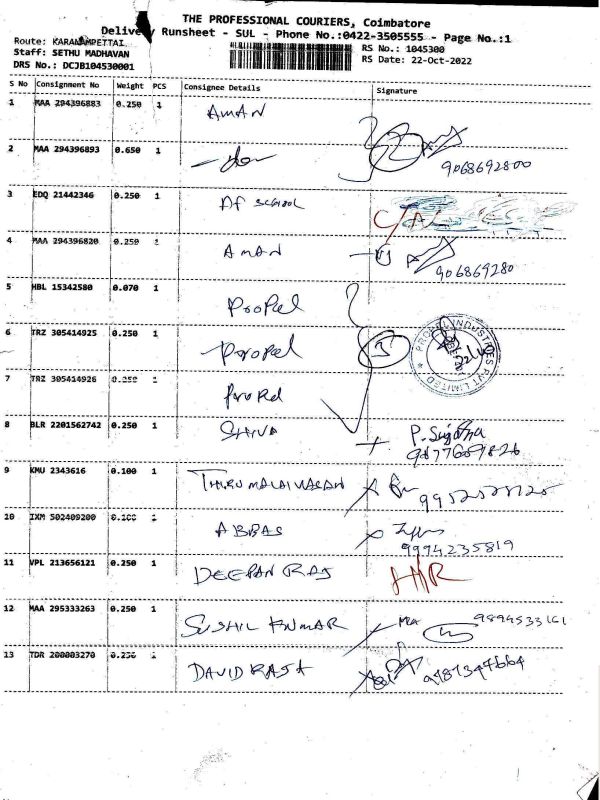 THE PROFESSIONAL COURIERS, Coimbatore
Delivery Runsheet - SUL - Phone No.:0422-3505555 - Page No.:1
Route: KARANAMPETTAI
Staff: SETHU MADHAVAN
DRS No.: DCJB104530001
RS No.: 1045300
RS Date: 22-Oct-2022
S No Consignment No Weight PCS Consignee Details Signature
1 MAA 294396883 0.250 1 AMAN
2 MAA 294396893 0.650 1
9068692800
3 EDQ 21442346 0.250 1 AF SCHOOL
4 MAA 294396820 0.250 1 AMAN
906869280
5 HBL 15342580 0.070 1 Propel
6 TRZ 305414925 0.250 1 Propel 3
7 TRZ 305414926 0.250 1 Propel
8 BLR 2201562742 0.250 1 SHIVA P. Sujatha
9 KMU 2343616 0.100 1 THIRUMALAIVASAN
10 IXM 502409200 0.100 1 ABBAS
9994235819
11 VPL 213656121 0.250 1 DEEPAN RAJ
12 MAA 295333263 0.250 1 SUSHIL KUMAR 9894533161
13 TDR 200003270 0.250 1 DAVID RAJA